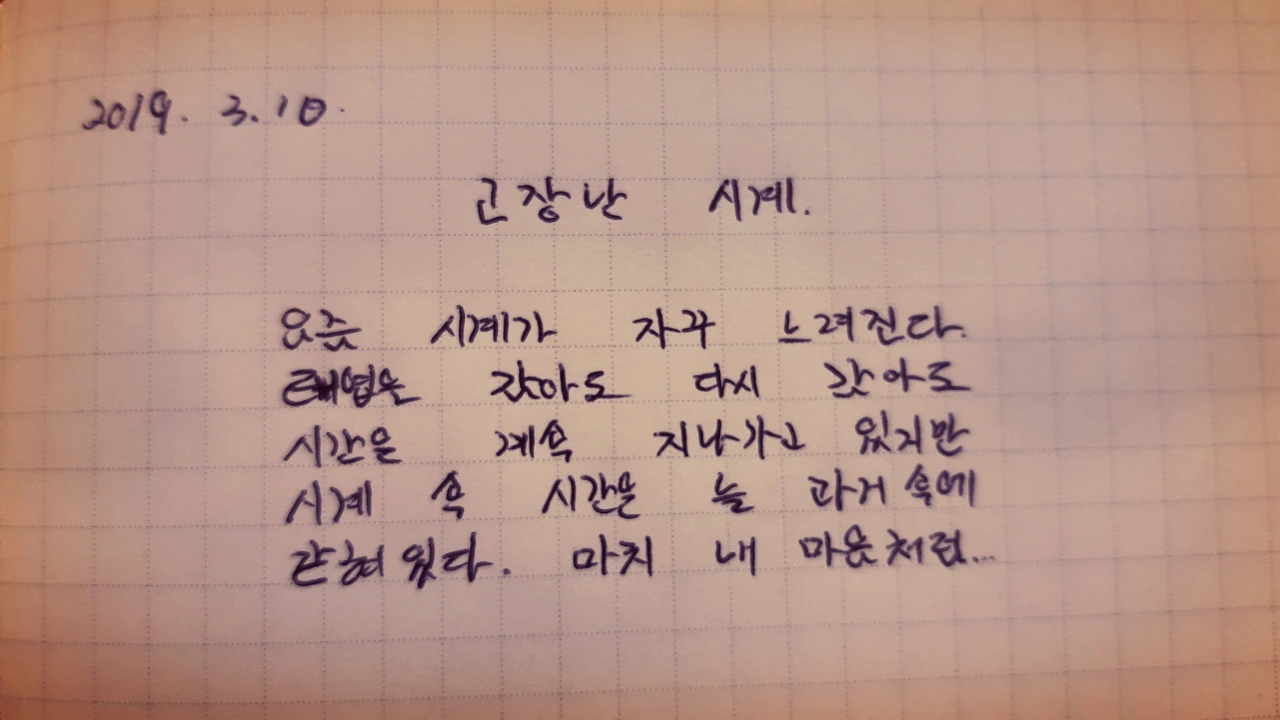 2019. 3. 10.
고장난 시계.
요즘 시계가 자꾸 느려진다.
태엽을 감아도 다시 감아도
시간은 계속 지나가고 있지만
시계 속 시간은 늘 과거 속에
갇혀있다. 마치 내 마음처럼...